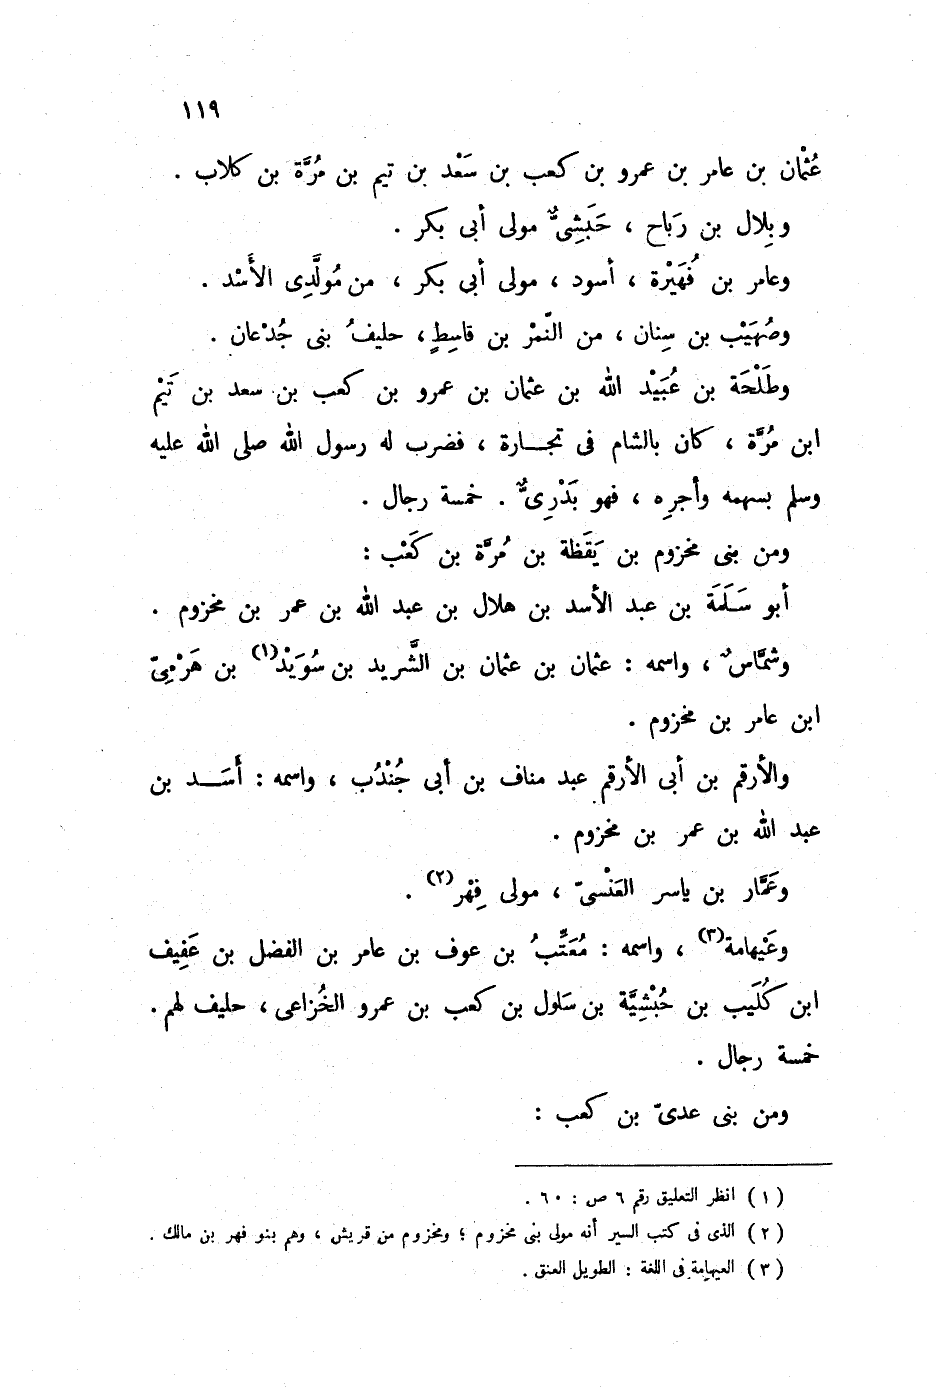 ١١٩
عُثْمان بن عامر بن عمرو بن كعب بن سَعْد بن تيم بن مُرَّة بن كلاب .
وبِلال بن رَباح ، حَبَشِىٌّ مولى أبى بكر .
وعامر بن فُهَيْرة ، أسود ، مولى أبى بكر ، من مُولَّدِى الأَسْد .
وصُهَيْب بن سِنان ، من النَّمْر بن قاسِطٍ ، حليفُ بنى جُدْعان .
وطَلْحَة بن عُبَيْد الله بن عثمان بن عمرو بن كعب بن سعد بن تَيْم
ابن مُرَّة ، كان بالشام فى تجـارة ، فضرب له رسول الله صلى الله عليه
وسلم بسهمه وأجرِه ، فهو بَدْرِىٌّ . خمسة رجال .
ومن بنى مخزوم بن يَقَظة بن مُرَّة بن كَعْب :
أبو سَـلَمَة بن عبد الأسد بن هلال بن عبد الله بن عمر بن مخزوم .
وشمَّاسٌ ، واسمه : عثمان بن عثمان بن الشَّريد بن سُوَيْد(١) بن هَرْمِىّ
ابن عامر بن مخزوم .
والأرقم بن أبى الأرقم عبد مناف بن أبى جُنْدُب ، واسمه : أَسَـد بن
عبد الله بن عمر بن مخزوم .
وعَمَّار بن ياسر العَنْسىّ ، مولى فِهْر(٢) .
وعَيْهامة(٣) ، واسمه : مُعَتِّبُ بن عوف بن عامر بن الفضل بن عَفِيف
ابن كُلَيب بن حُبْشِيَّة بن سَلول بن كعب بن عمرو الخُزاعى ، حليف لهم .
خمسة رجال .
ومن بنى عدىّ بن كعب :
( ١ ) انظر التعليق رقم ٦ ص : ٦٠ .
( ٢ ) الذى فى كتب السير أنه مولى بنى مخزوم ؛ ومخزوم من قريش ، وهم بنو فهر بن مالك .
( ٣ ) العيهامة فى اللغة : الطويل العنق .